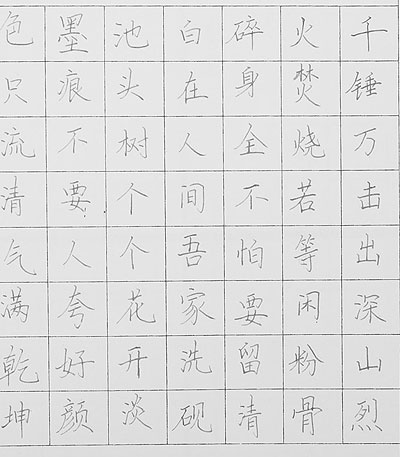 千锤万击出深山烈
火焚烧若等闲粉骨
碎身全不怕要留清
白在人间吾家洗砚
池头树个个花开淡
墨痕不要人夸好颜
色只流清气满乾坤